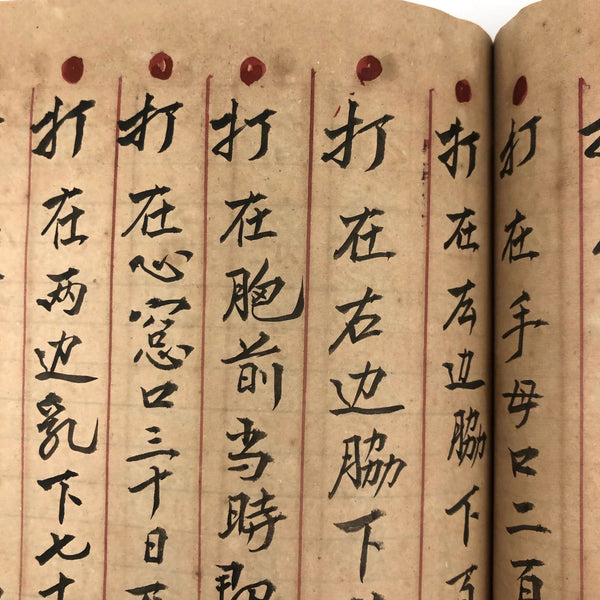 打在手母口二百
打在左边脇下
打在右边脇下
打在胞前当時即
打在心窓口三十日
打在两边乳下七十